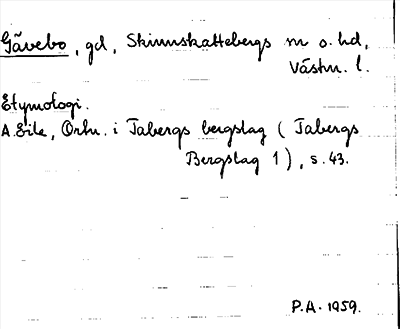 Gåvebo, gd, Skinnskattebergs m o. hd,
Västm. l.
Etymologi.
A. Eile, Ortn. i Tabergs bergslag (Tabergs
Bergslag 1), s. 43.
P.A. 1959.